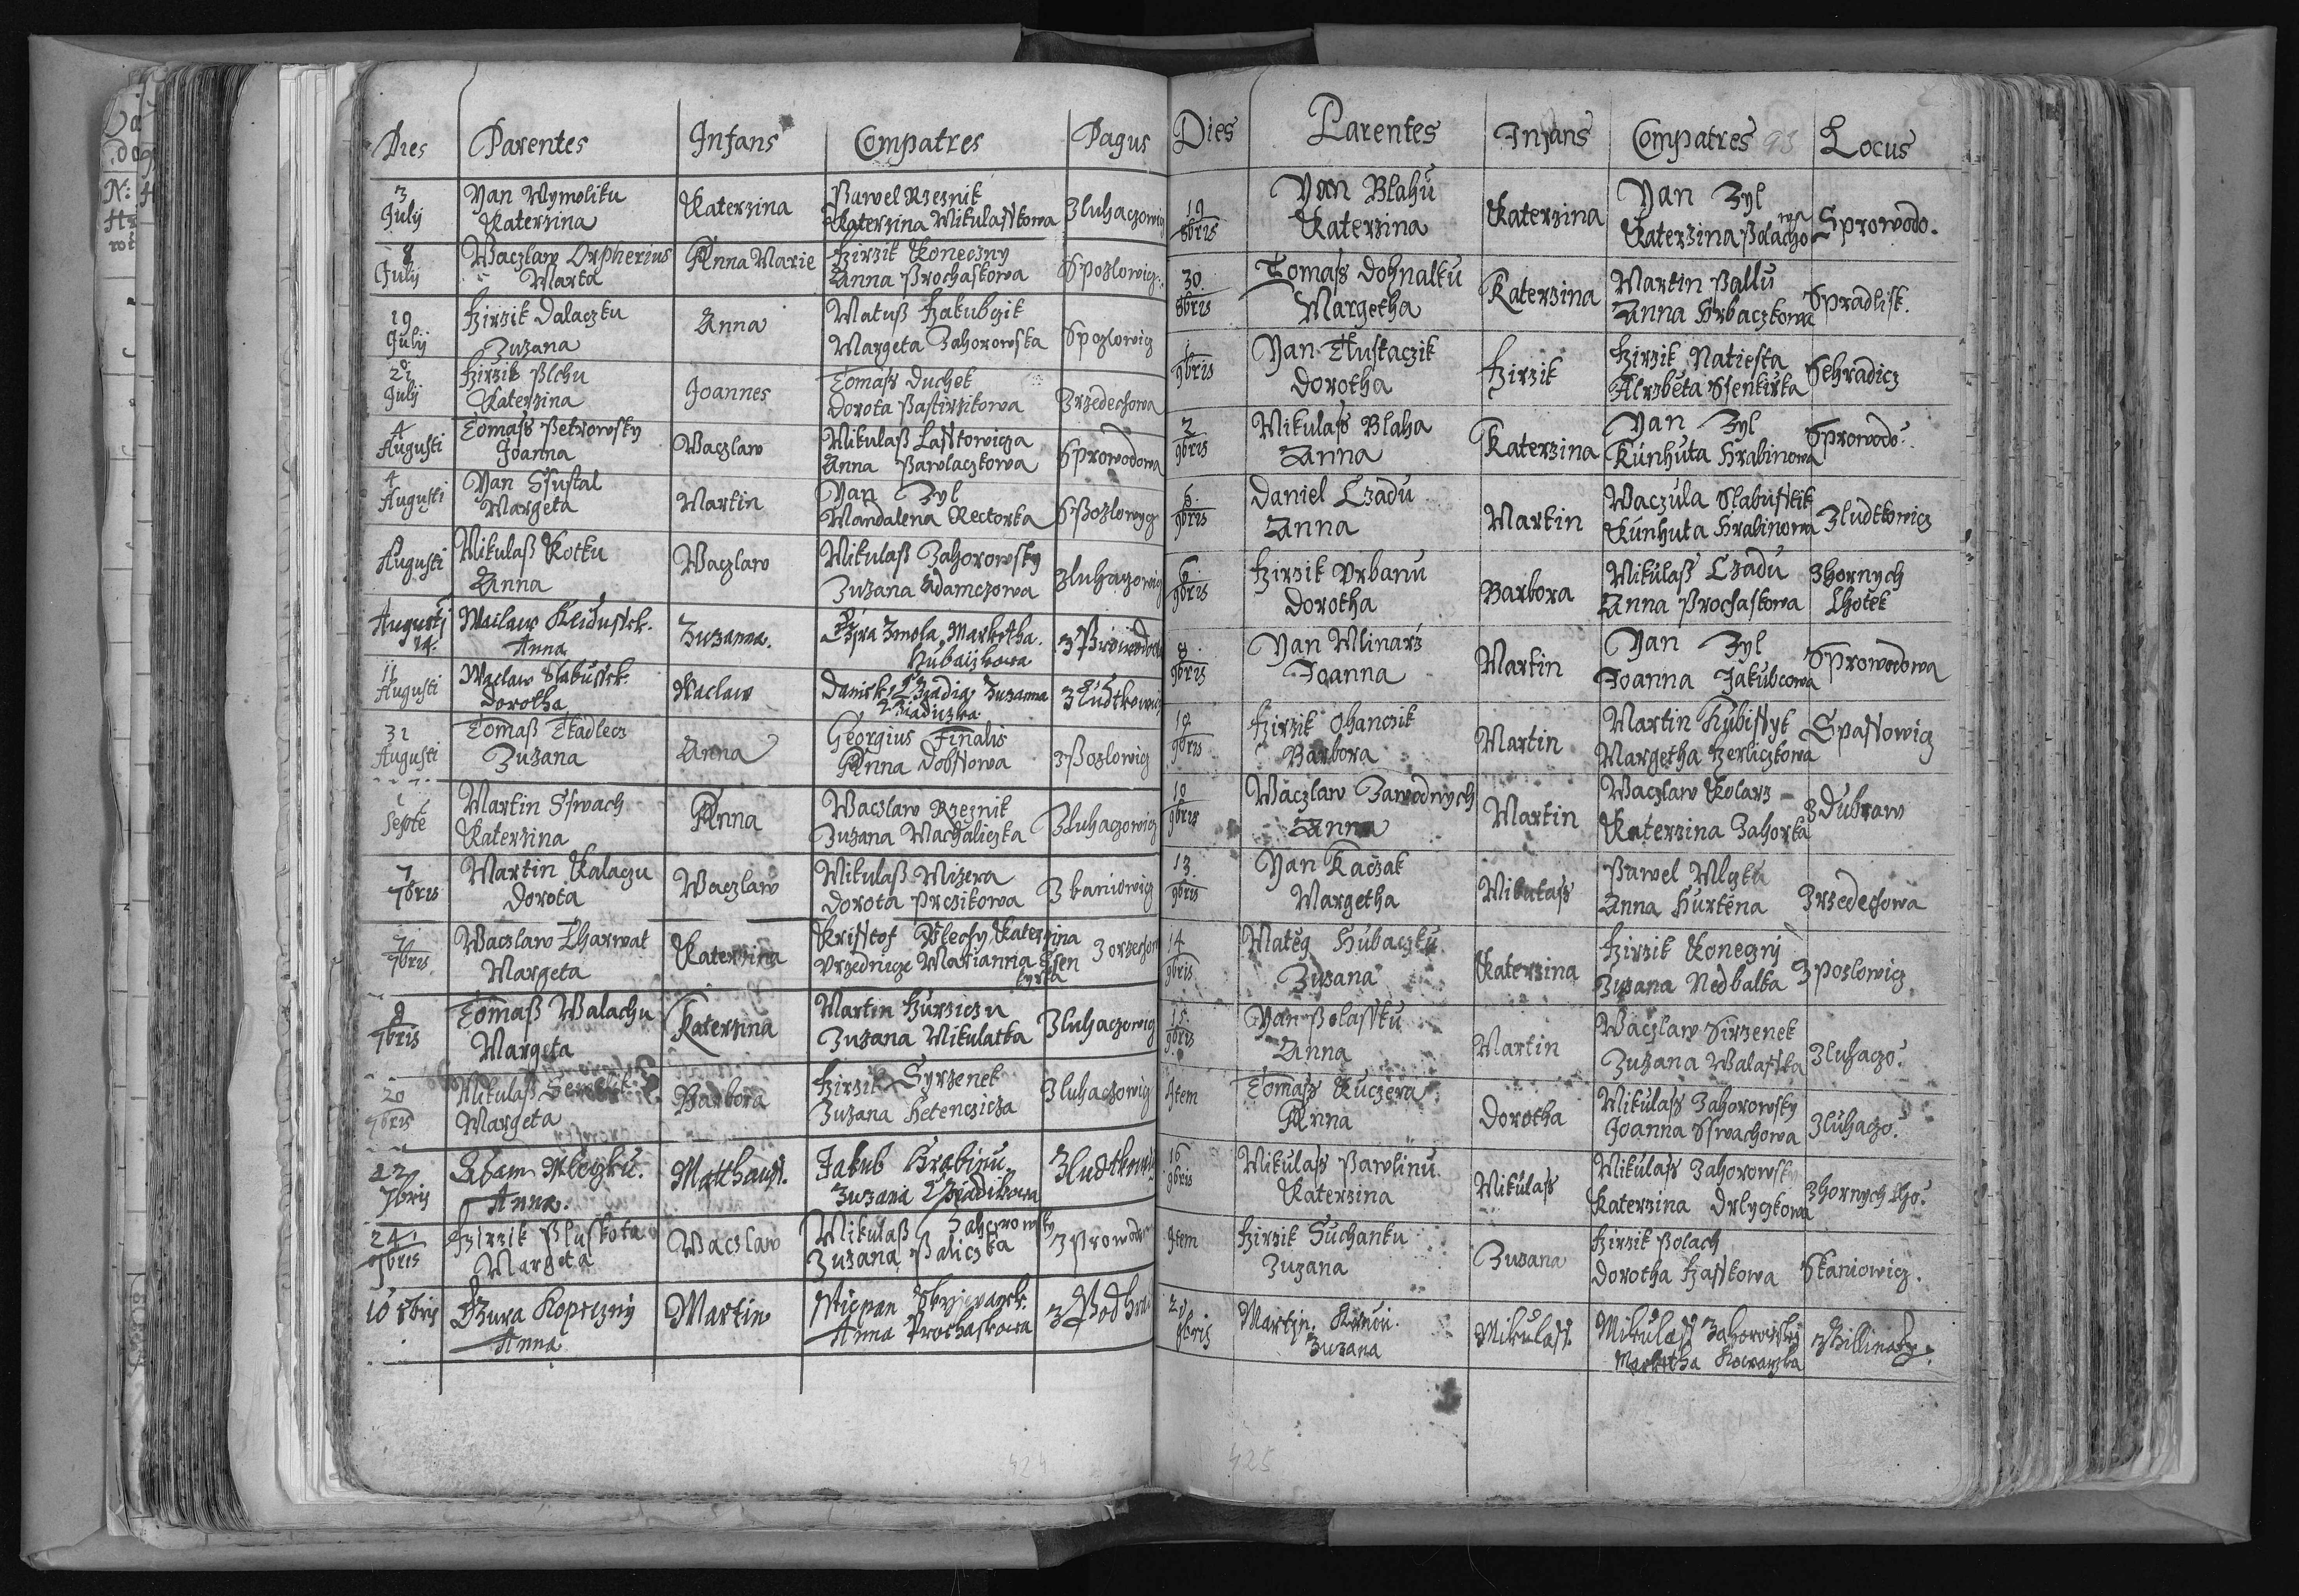 Dies Parentes Infans Compatres Pagus
3 July Yan Wymoliku Katerzina Katerzina Pawel Rzeznik Katerzina Mikulasskowa Zluhaczowicz
8 July Waczlaw Orpherius Marta Anna Marie Girzik Koneczny Anna Prochaskowa Spozlowicz
19 July Girzik Dalaczku Zuzana Anna Matuß Jakubczik Margeta Zahorowska Spozlowicz
July Girzik Plchu Katerzina Joannes Tomass Duchek Dorota Pastirzikowa Zrzedechowa
4 Augusti Tomass Petrowsky Joanna Waczlaw Mikulaß Lasstowicza Anna Pawlaczkowa Sprowodowa
4 Augusti Yan Ssustal Margeta Martin Yan Zyl Mandalena Rectorka Spozlowycz
Augusti Mikulaß Kotku Anna Waczlaw Mikulaß Zahorowsky Zuzana Adamczowa Zluhaczowicz
Augusti 14. Anna Zuzanna. Zmola, Marketha.
11 Augusti Waclaw Slabussek. Dorotha Waclaw Zuzanna
31 Augusti Tomaß Tkadlecz Zuzana Anna Georgius Finalis Anna Dobssowa Zpozlowicz
Septe Martin Sswach Katerzina Anna Waczlaw Rzeznik Zuzana Machaliczka Zluhaczowicz
7 7bris Martin Kalaczu Dorota Waczlaw Mikulaß Mizera Dorota Przikowa Zkaniowicz
7 7bris Waczlaw Charwat Margeta Katerzina Krisstof Katerzina Vrzednicze Marianna Ssen kyrka
9 7bris Tomaß Walachu Margeta Katerzina Martin Zuzana Mikulatka Zluhaczowicz
20 7bris Mikulaß Margeta Barbora Girzik Syrzenek Zuzana Hetenczicza Zluhaczowicz
22 7bris Adam Anna. Matthauss. Jakub Hrabinu Zuzana Zludkowicz
24 7bris Girzik Pluskota Margeta Waczlaw Mikulaß Zahorowsky Zuzana Paliczka Zprowodo
10 8bris Dzura Kopeczny Anna Martin Anna Prochaskowa
Dies Parentes Infans Compatres 93 Locus
19 8bris Yan Blahu Katerzina Katerzina Yan Zyl Katerzina Polachowa Sprowodo.
30 8bris Tomass Dohnalku Margetha Katerzina Martin Pallu Anna Hrbaczkowa Spradlisk.
1 9bris Yan Tluskaczik Dorotha Girzik Girzik Natiesta Alzbeta Ssenkirka Sehradicz
2 9bris Mikulass Blaha Anna Katerzina Yan Zyl Kunhuta Hrabinowa Sprowodo
6 9bris Daniel Czadu Anna Martin Waczula Slabusskik Kunhuta Hrabinowa Zludkowicz
6 9bris Girzik Vrbanu Dorotha Barbora Mikulass Czadu Anna Prochaskowa Zhornych Lhotek
8 9bris Yan Mlinarz Joanna Martin Yan Zyl Joanna Jakubcowa Sprowodowa
10 9bris Girzik Ohanczik Barbora Martin Martin Kubissyk Margetha Herliczkowa Spassowicz
10 9bris Waczlaw Zawodnych Anna Martin Waczlaw Kolarz Katerzina Zahorka Zdubraw
13 9bris Yan Kaczak Margetha Mikulass Pawel Mlczku Anna Hurtena Zrzedechowa
14 9bris Mateg Hubaczku Zuzana Katerzina Girzik Konegny Zuzana Nedbalka Zpozlowicz
15 9bris Yan Polassku Anna Martin Waczlaw Sirzenek Zuzana Walasska Zluhaczo.
Item Tomass Kuczera Anna Dorotha Mikulass Zahorowsky Joanna Sswachowa Zluhaczo.
16 9bris Mikulass Pawlinu Katerzina Mikulass Mikulass Zahorowsky Katerzina Drlyczkowa Zhornych Lho.
Item Girzik Suchanku Zuzana Zuzana Girzik Polach Dorotha Hasskowa Skaniowicz.
9bris Martin Zuzana Mikulass Mikulass Zahorowsky Marketha Kowarzka
424 425